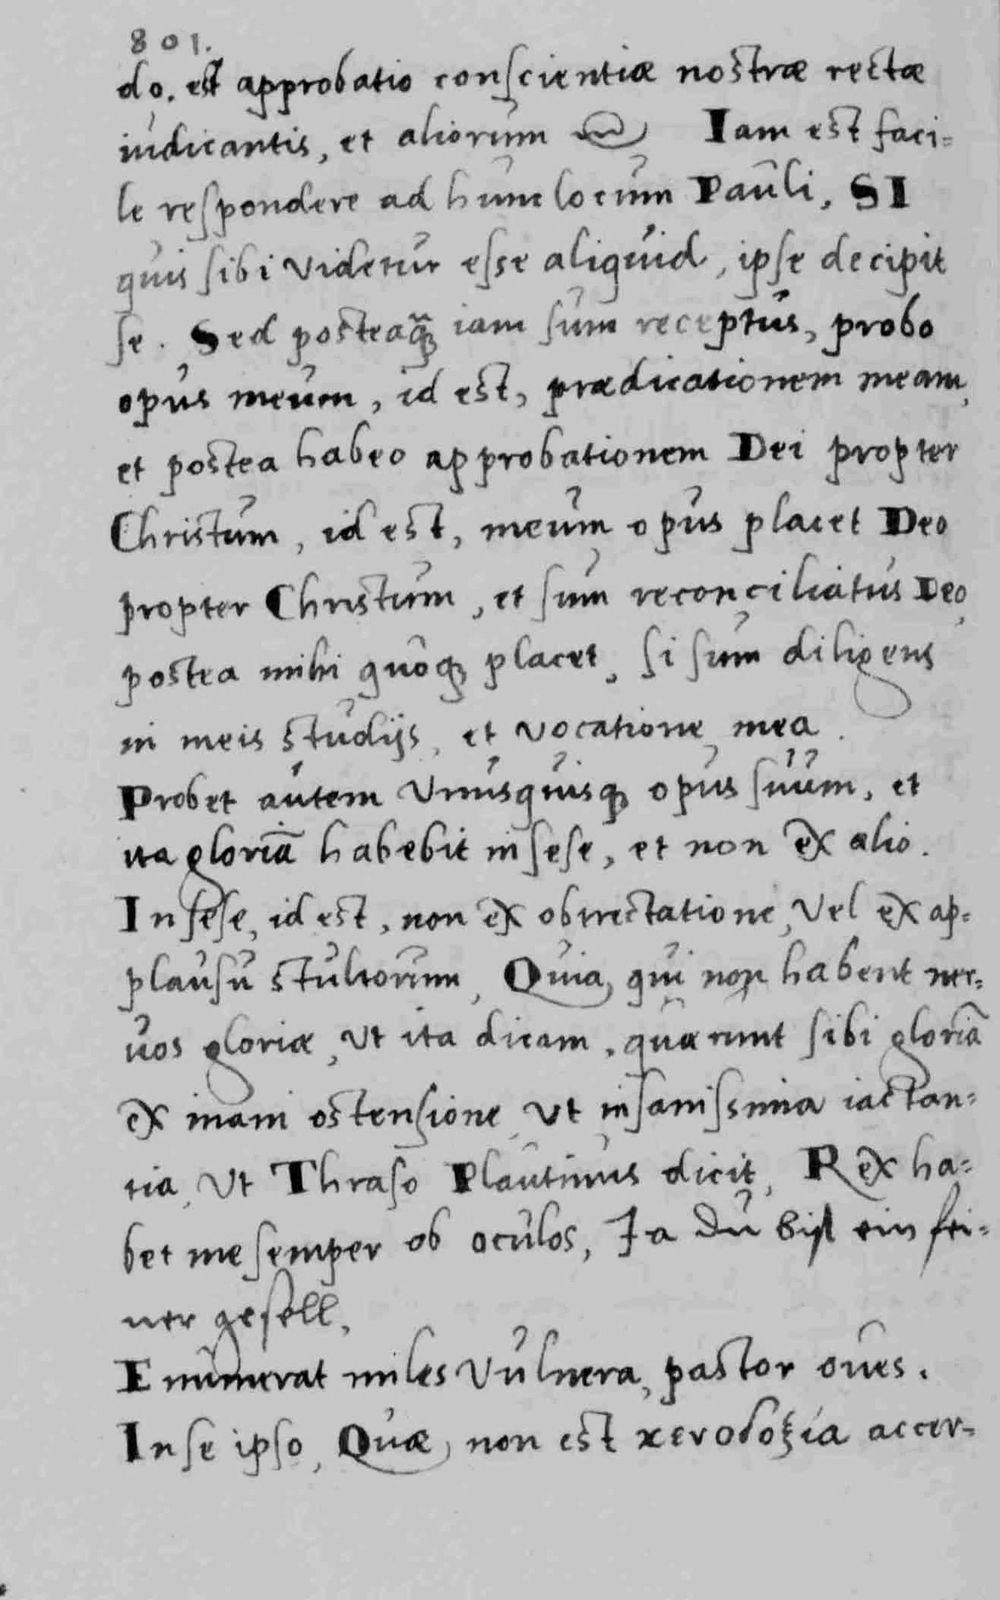 801.
do. est approbatio conscientiæ nostræ rectæ
iudicantis, et aliorum Iam est faci=
le respondere ad hunc locum Pauli, SI
quis sibi videtur esse aliquid, ipse decipit
se. Sed posteaqꝫ̃ iam sum receptus, probo
opus meum, id est, prædicationem meam,
et postea habeo approbationem Dei propter
Christum, id est, meum opus placet Deo
propter Christum, et sum reconciliatus Deo,
postea mihi quoqꝫ placet, si sum diligens
in meis studijs, et vocatione mea.
Probet autem Vnusquisqꝫ opus suum, et
ita gloriã habebit in sese, et non ex alio.
In sese, id est, non ex obtrectatione, Vel ex ap=
plausu stultorum, Quia, qui non habent ner=
uos gloriæ, Vt ita dicam, quærunt sibi gloriã
ex inani ostensione, Vt insanissima iactan=
tia, Vt Thraso Plautinus dicit, Rex ha=
bet me semper ob oculos, Ja du bist ein fei=
ner gesell.
Enumerat miles Vulnera, pastor oues.
In se ipso, Quæ, non est κενοδοξία accer=